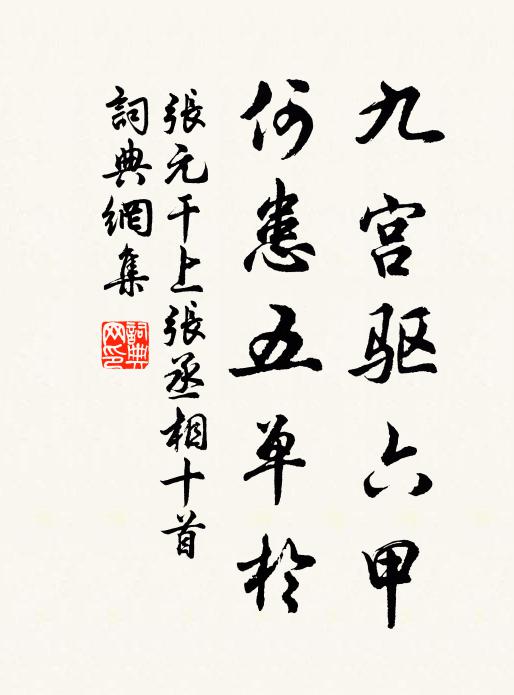 九宫驱六甲
何患五单於
張元干上張丞相十首
詞典網集
詞典網印